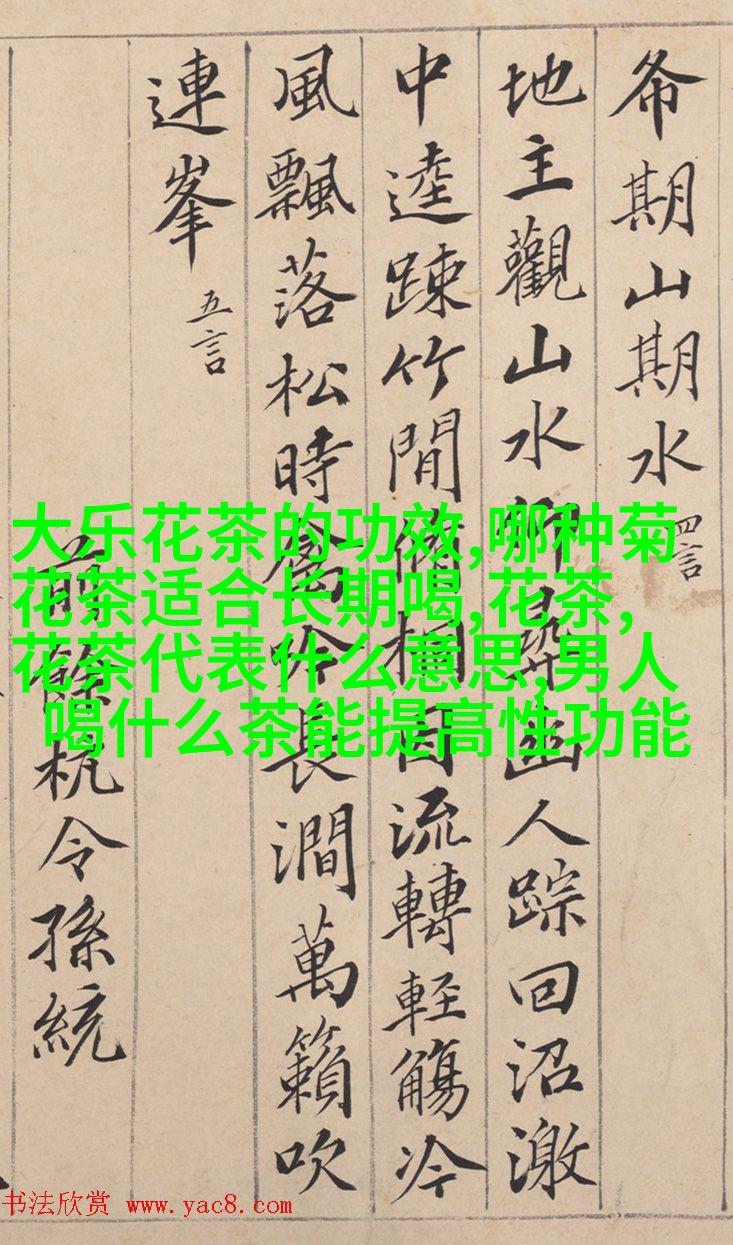 希期山期水 四言
地主觀山水仰尋幽人踪回沼激
中逵踈竹間脩桐因流轉輕觴冷
風飄落松時禽吟長澗萬籟吹
連峯 五言
前餘杭令孫統
大乐花茶的功效,哪种菊
花茶适合长期喝,花茶,
花茶代表什么意思,男人
喝什么茶能提高性功能
书法欣赏 www.yac8.com